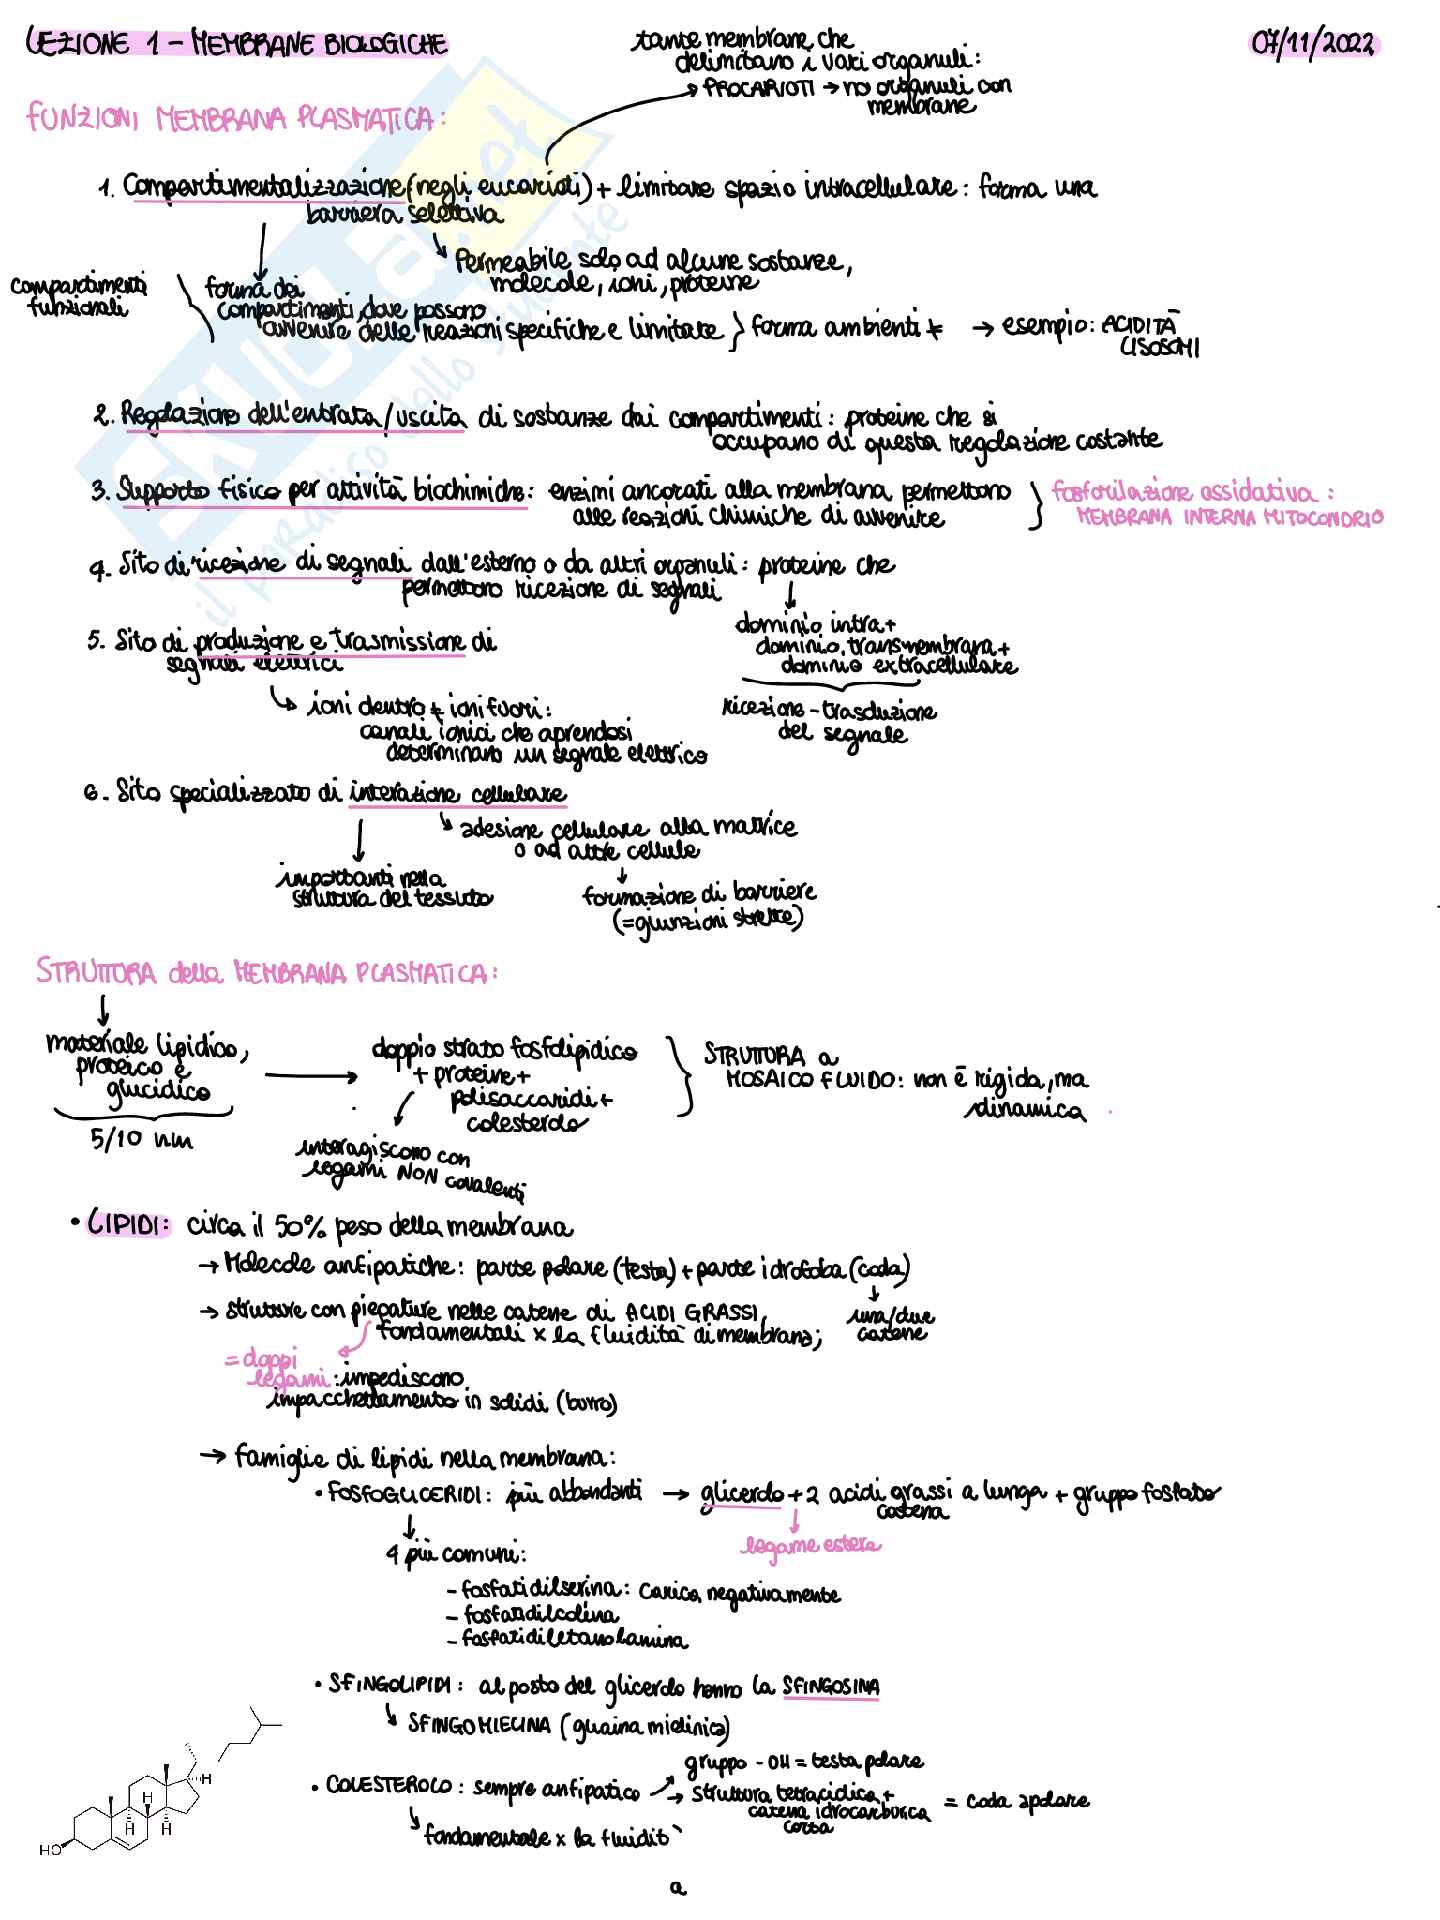 LEZIONE 1 - MEMBRANE BIOLOGICHE
07/11/2022
tante membrane che
delimitano i vari organuli:
→ PROCARIOTI → no organuli con
membrane
FUNZIONI MEMBRANA PLASMATICA:
1. Compartimentalizzazione (negli eucarioti) + limitare spazio intracellulare: forma una
barriera selettiva
Permeabile solo ad alcune sostanze,
molecole, ioni, proteine
compartimenti
funzionali
forma dei
compartimenti, dove possono
avvenire delle reazioni specifiche e limitate } forma ambienti ≠ → esempio: ACIDITÀ
LISOSOMI
2. Regolazione dell'entrata/uscita di sostanze dai compartimenti: proteine che si
occupano di questa regolazione costante
3. Supporto fisico per attività biochimiche: enzimi ancorati alla membrana permettono
alle reazioni chimiche di avvenire
fosforilazione ossidativa:
MEMBRANA INTERNA MITOCONDRIO
4. Sito di ricezione di segnali dall'esterno o da altri organuli: proteine che
permettono ricezione di segnali
dominio intra +
dominio transmembrana +
dominio extracellulare
ricezione - trasduzione
del segnale
5. Sito di produzione e trasmissione di
segnali elettrici
ioni dentro ≠ ioni fuori:
canali ionici che aprendosi
determinano un segnale elettrico
6. Sito specializzato di interazione cellulare
adesione cellulare alla matrice
o ad altre cellule
importanti nella
struttura del tessuto
formazione di barriere
(= giunzioni strette)
STRUTTURA della MEMBRANA PLASMATICA:
materiale lipidico,
proteico e
glucidico
5/10 nm
doppio strato fosfolipidico
+ proteine +
polisaccaridi +
colesterolo
interagiscono con
legami NON covalenti
STRUTTURA a
MOSAICO FLUIDO: non è rigida, ma
dinamica
• LIPIDI: circa il 50% peso della membrana
→ Molecole anfipatiche: parte polare (testa) + parte idrofoba (coda)
una/due
catene
→ strutture con piegature nelle catene di ACIDI GRASSI,
fondamentali x la fluidità di membrana;
= doppi
legami: impediscono
impacchettamento in solidi (burro)
→ famiglie di lipidi nella membrana:
• FOSFOGLICERIDI: più abbondanti → glicerolo + 2 acidi grassi a lunga + gruppo fosfato
catena
legame estere
4 più comuni:
- fosfatidilserina: carica negativamente
- fosfatidilcolina
- fosfatidiletanolamina
• SFINGOLIPIDI: al posto del glicerolo hanno la SFINGOSINA
SFINGOMIELINA (guaina mielinica)
• COLESTEROLO: sempre anfipatico
gruppo -OH = testa polare
→ struttura tetraciclica +
catena idrocarburica
corta
= coda apolare
fondamentale x la fluidità
HO
H
H
H
H
a
SKUOLA.net
il paradiso dello studente